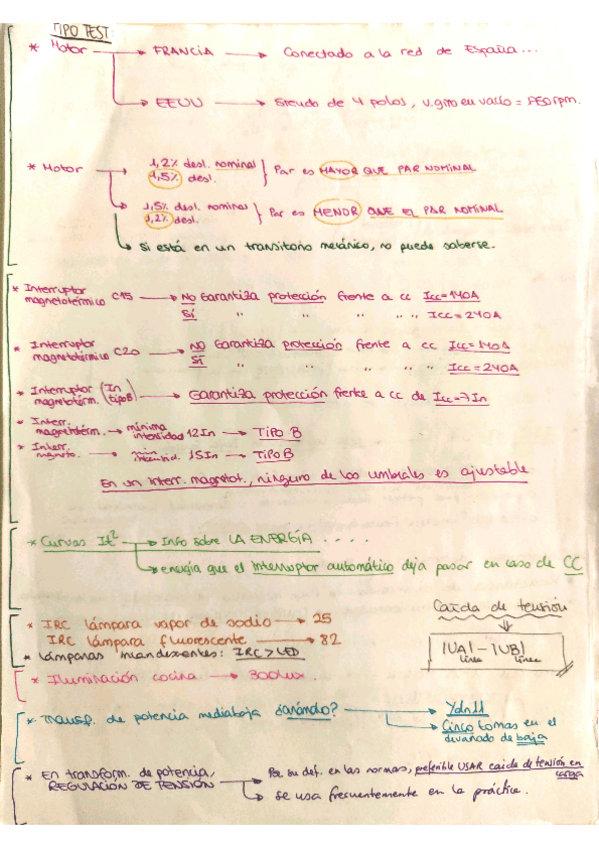 TIPO TEST:
* Motor → FRANCIA → Conectado a la red de España...
→ EEUU → Siendo de 4 polos, v.giro en vacío = rpm.
* Motor → 1,2% desl. nominal
1,5% desl. } Par es MAYOR QUE PAR NOMINAL
→ 1,5% desl. nominal
1,2% desl. } Par es MENOR QUE EL PAR NOMINAL
→ Si está en un transitorio mecánico, no puede saberse.
* Interruptor magnetotérmico C15 → NO Garantiza protección frente a cc Icc=140A
Sí " " " " " Icc=240A
* Interruptor magnetotérmico C20 → NO Garantiza protección frente a cc Icc=140A
Sí " " " " Icc=240A
* Interruptor magnetotérm. (In tipo B) → Garantiza protección frente a cc de Icc=7In
* Interr. magnetotérm. → mínima intensidad 12In → TIPO B
* Interr. magneto. → 15In → TIPO B
En un interr. magnetot., ninguno de los umbrales es ajustable
* Curvas It² → Info sobre LA ENERGÍA ....
→ energía que el interruptor automático deja pasar en caso de CC
* IRC lámpara vapor de sodio → 25
IRC lámpara fluorescente → 82
* Lámparas incandescentes: IRC > LED
Caída de tensión
|UA| - |UB|
línea línea
* Iluminación cocina → 300lux.
* Transf. de potencia media baja ¿? → Ydn11
→ Cinco tomas en el devanado de baja
* En transform. de potencia, REGULACIÓN DE TENSIÓN → Por su def. en las normas, preferible USAR caída de tensión en carga
→ se usa frecuentemente en la práctica.